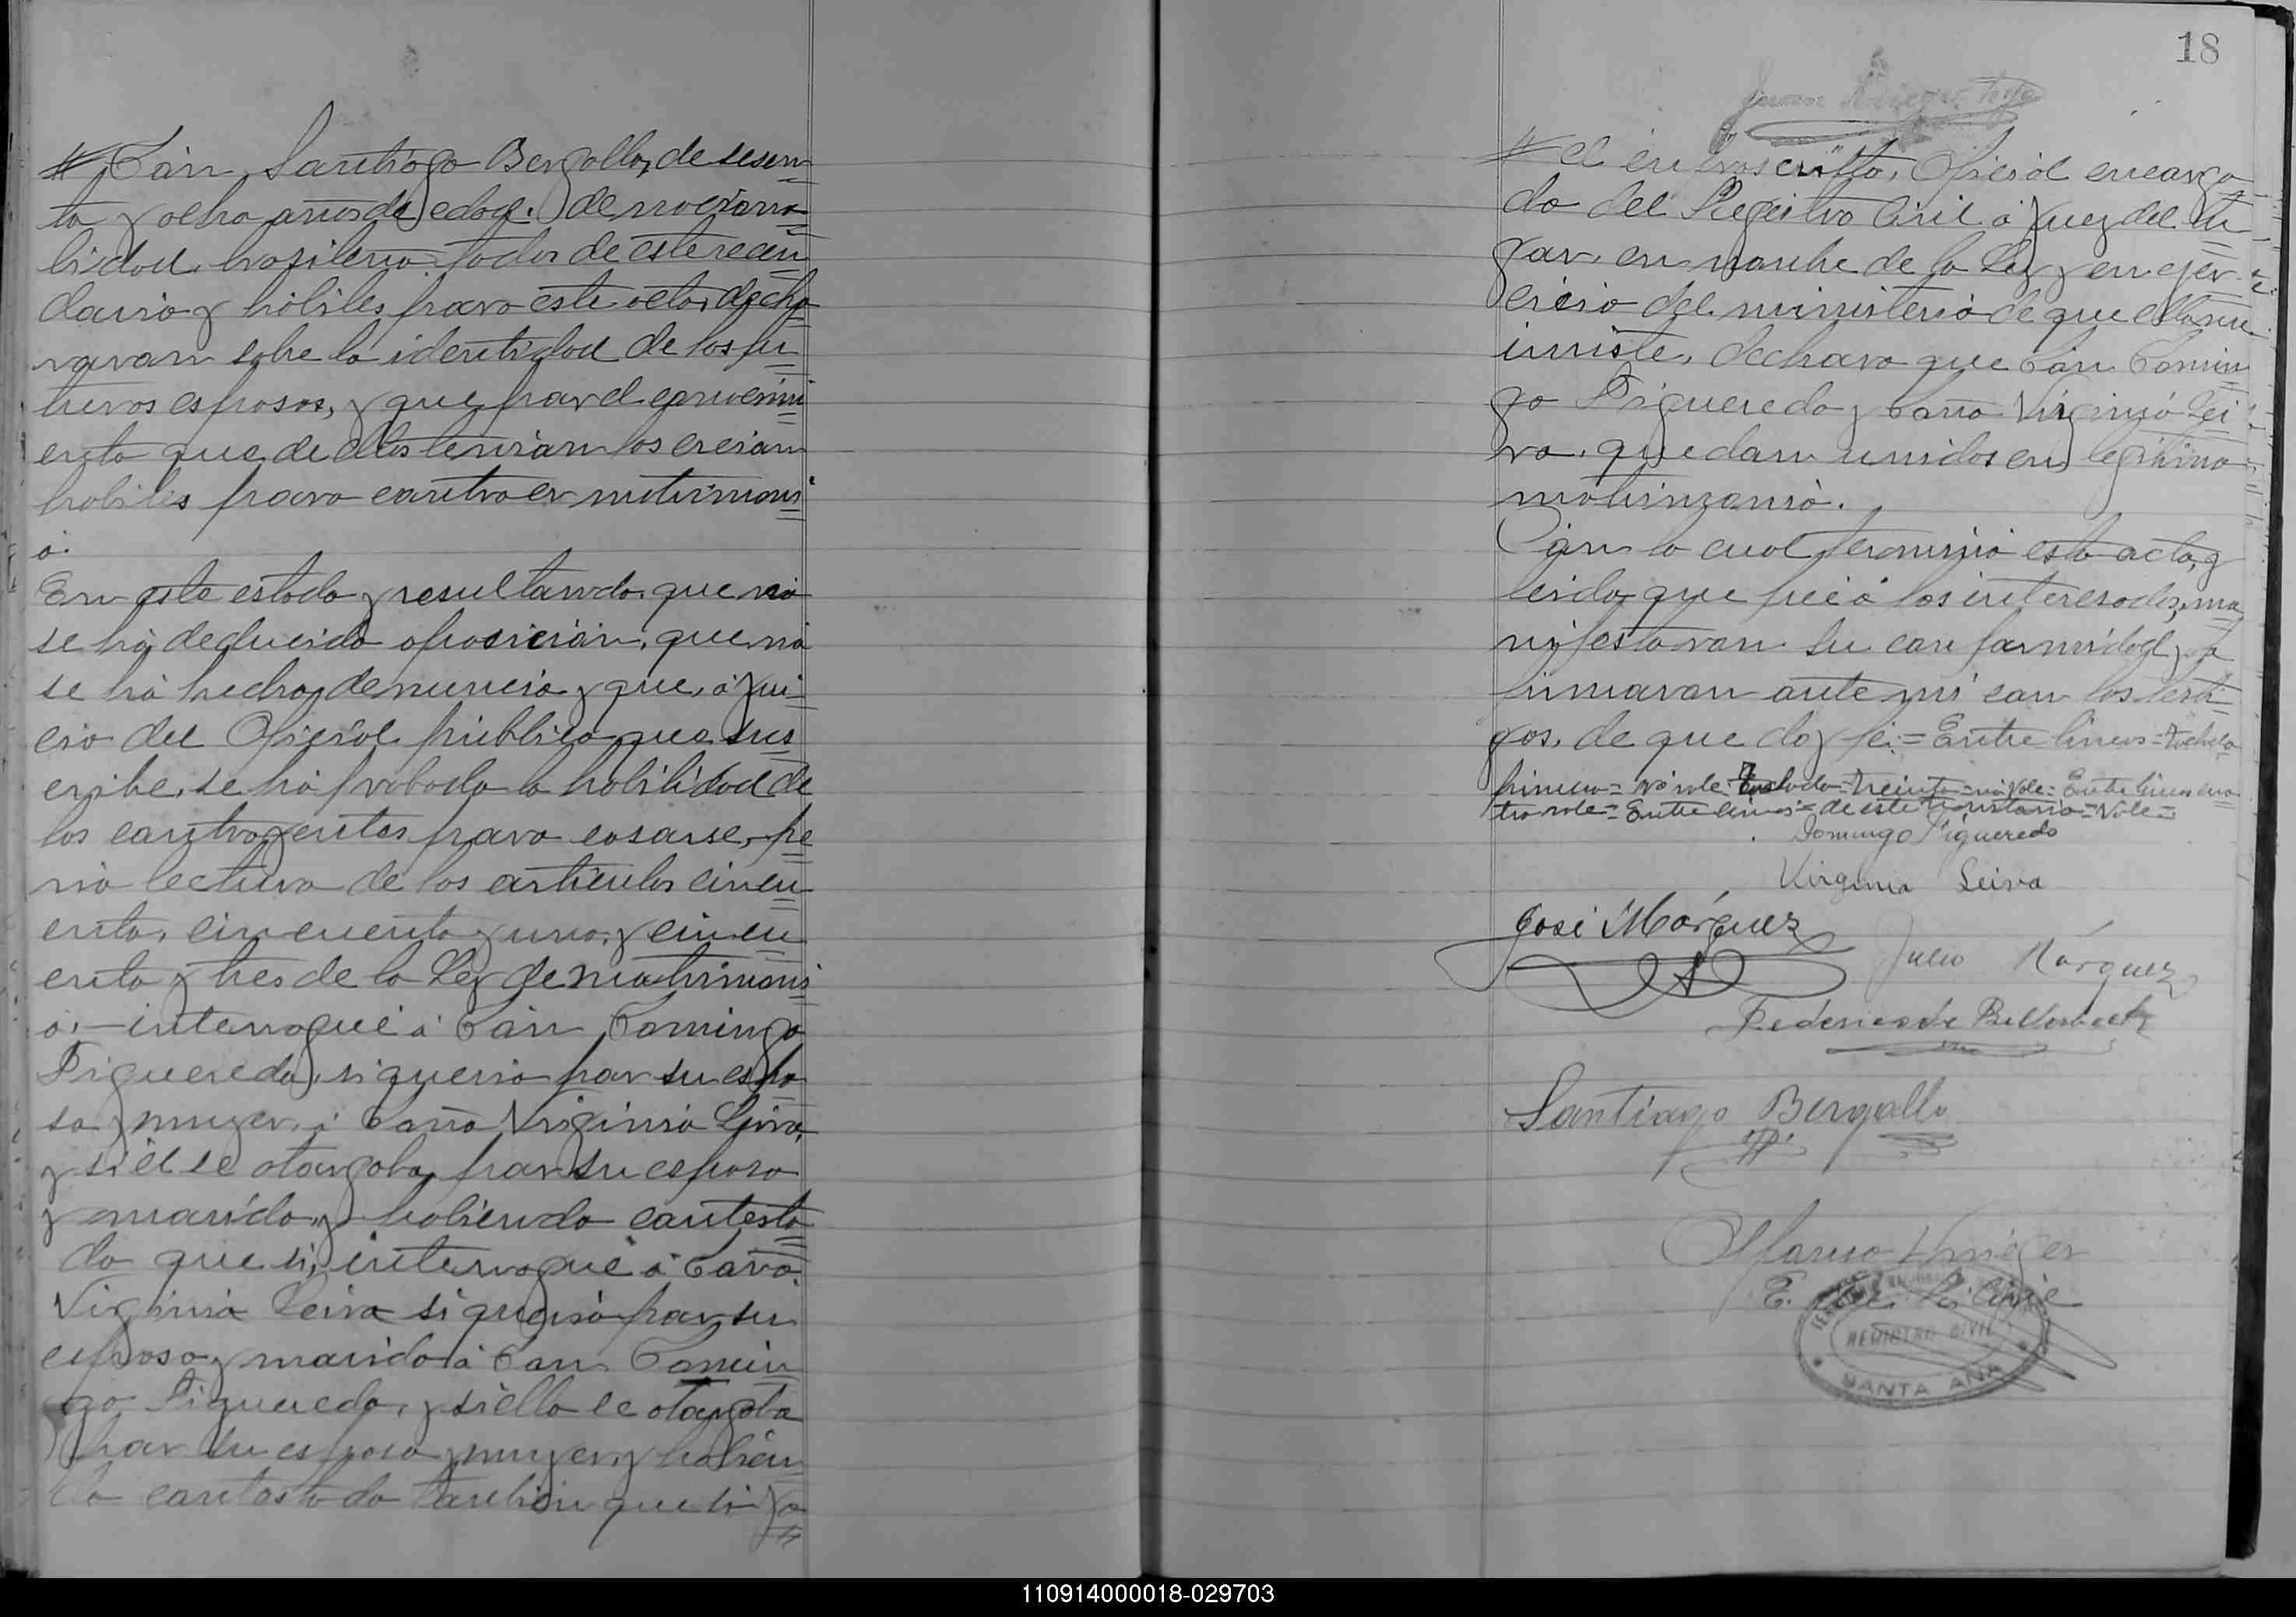 Dn Santiago Bergallo, de sesen
ta y ocho años de edad, de naciona
lidad brasilera todos de este vecin
dario y hábiles para este acto, decla
raron sobre la identidad de los fu
turos esposos, y que por el conocimi
ento que de ellos tenian los creian
habiles para contraer matrimoni
o.
En este estado y resultando que no
se ha deducido oposición, que no
se ha hecho denuncia y que, a jui
cio del Oficial público que sus
cribe, se ha probado la habilidad de
los contrayentes para casarse, pre
via lectura de los articulos cincu
enta, cincuenta y uno, y cincu
enta y tres de la Ley de Matrimoni
o, interrogué á Don Domingo
Figueredo, si queria por su espo
sa y mujer, á Doña Virginia Leiva,
y si él se otorgaba por su esposo
y marido, y habiendo contesta
do que si, interrogué á Doña
Virginia Leiva si queria por su
esposo y marido á Don Domin
go Figueredo, y si ella se otorgaba
por su esposa y mujer, y habien
do contestado tambien que si, yo
18
el infrascrito, Oficial encarga
do del Registro Civil á
en nombre de la Ley y en ejer
cicio del ministerio de que ella me
inviste, declaro que Don Domin
go Figueredo y Doña Virginia Lei
va, quedan unidos en legitimo
matrimonio.
Con lo cual terminó esta acta, y
leida que fué á los interesados, ma
nifestaron su conformidad y la
firmaron ante mi con los testi
gos, de que doy fé = Entre lineas =
primero = no vale = treinta = no vale = Entre lineas cua
tro vale = Entre lineas = de este = Vale =
Domingo Figueredo
Virginia Leiva
José Márquez
Julio Márquez
Federico de
Santiago Bergallo
REGISTRO CIVIL
SANTA ANA
110914000018-029703